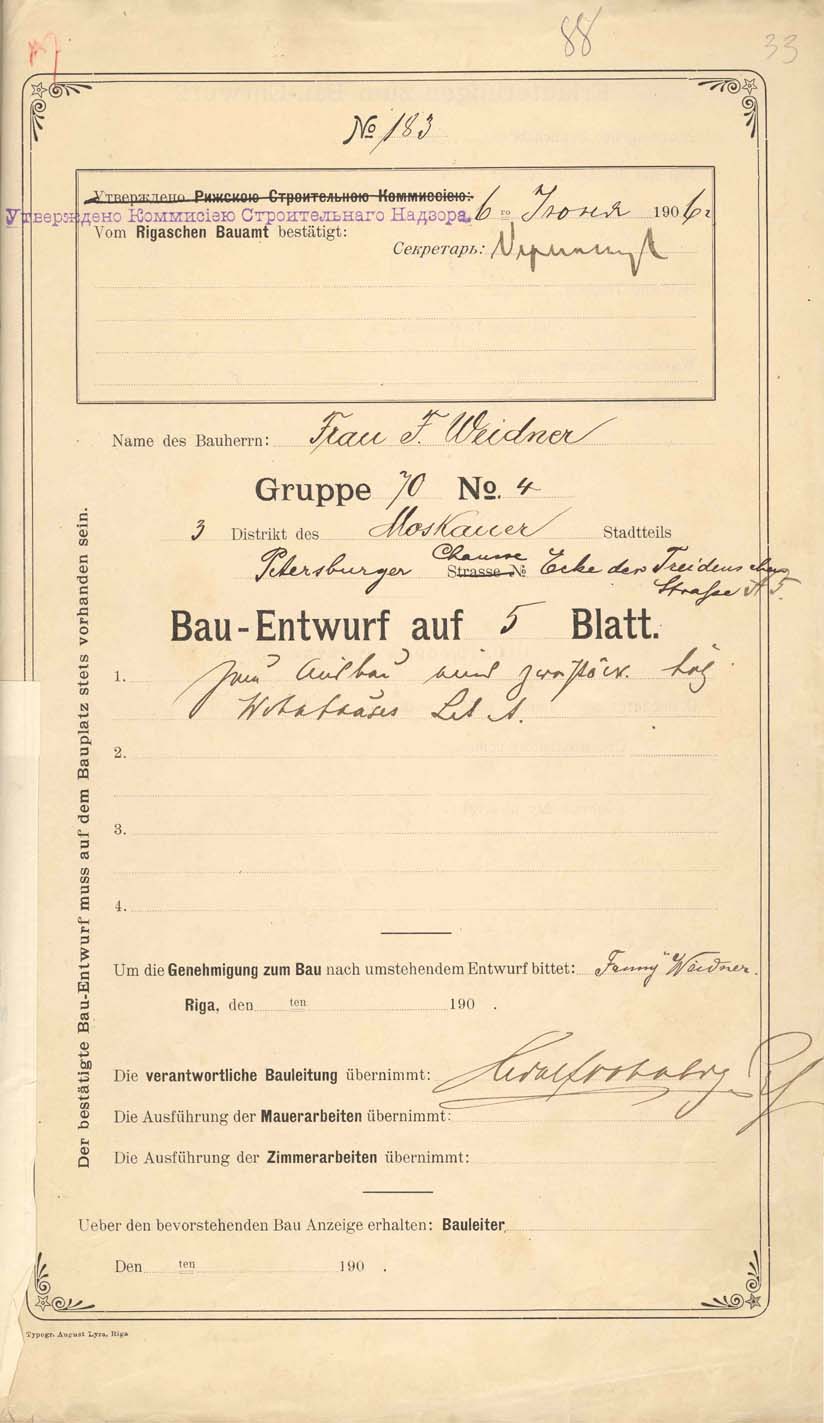 88
33
№ 183
Утверждено Рижскою Строительною Коммиссіею:
Утверждено Коммисіею Строительнаго Надзора, 6 го Іюня 1906 г.
Vom Rigaschen Bauamt bestätigt:
Секретарь:
Name des Bauherrn: Frau F. Weidner
Gruppe 70 No. 4
3 Distrikt des Moskauer Stadtteils
Petersburger Strasse № Chaussee Ecke der Treidenschen
Strasse № 5.
Bau-Entwurf auf 5 Blatt.
1. zum Aufbau zweistöck. hölz
Wohnhauses Lit A.
2.
3.
4.
Um die Genehmigung zum Bau nach umstehendem Entwurf bittet: Fanny Weidner.
Riga, den ten 190 .
Die verantwortliche Bauleitung übernimmt:
Die Ausführung der Mauerarbeiten übernimmt:
Die Ausführung der Zimmerarbeiten übernimmt:
Ueber den bevorstehenden Bau Anzeige erhalten: Bauleiter
Den ten 190 .
Der bestätigte Bau-Entwurf muss auf dem Bauplatz stets vorhanden sein.
Typogr. August Lyra, Riga